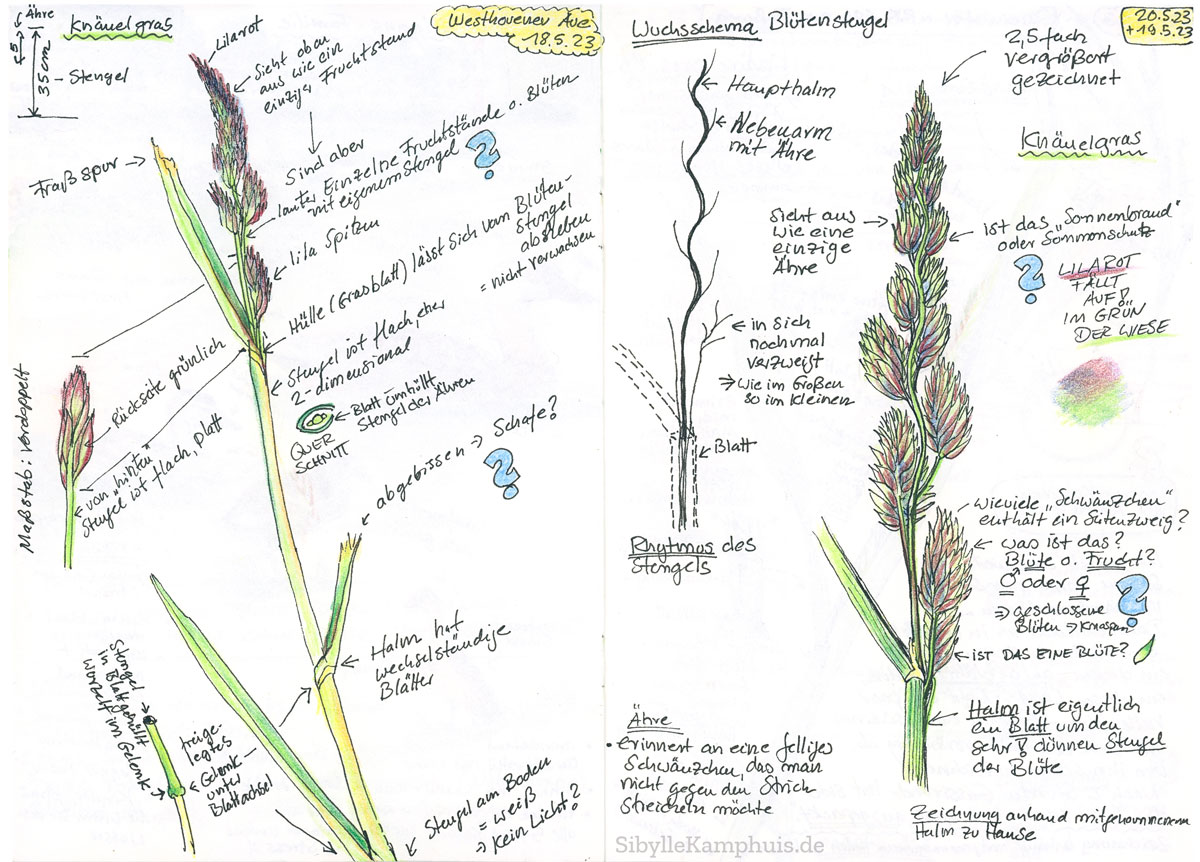 Ähre
5
35cm
Stengel
Knäuelgras
Westhovener Aue
18.5.23
Lilarot
Sieht oben
aus wie ein
einziger Fruchtstand
Sind aber
lauter Einzelne Fruchtstände o. Blüten
mit eigenem Stengel
?
Fraßspur
lila Spitzen
Hülle (Grasblatt) lässt sich vom Blüten-
stengel
abheben
= nicht verwachsen
Stengel ist flach, eher
2-dimensional
Blatt umhüllt
Stengel der Ähren
QUER
SCHNITT
Maßstab: verdoppelt
Rückseite grünlich
von "hinten"
Stengel ist flach, platt
abgebissen ⇒ Schafe?
?
Halm hat
wechselständige
Blätter
Stengel
in Blatt gehüllt
wurzelt im Gelenk
freige-
legtes
Gelenk
unter
Blattachsel
Stengel am Boden
= weiß
⇒ kein Licht?
Wuchsschema Blütenstengel
20.5.23
+ 19.5.23
Haupthalm
Nebenarm
mit Ähre
in sich
nochmal
verzweigt
⇒ wie im Großen
so im kleinen
Blatt
Rhytmus des
Stengels
2,5 fach
vergrößert
gezeichnet
Knäuelgras
Sieht aus
wie eine
einzige
Ähre
ist das "Sonnenbrand"
oder Sonnenschutz
?
LILAROT
FÄLLT
AUF!
IM GRÜN
DER WIESE
wieviele "Schwänzchen"
enthält ein Seitenzweig?
was ist das?
Blüte o. Frucht?
♂ oder ♀
?
⇒ geschlossene
Blüten ⇒ Knospen
IST DAS EINE BLÜTE?
Halm ist eigentlich
ein Blatt um den
sehr dünnen Stengel
der Blüte
Ähre
• erinnert an eine felliges
Schwänzchen, das man
nicht gegen den Strich
streicheln möchte
Zeichnung anhand mitgenommenem
Halm zu Hause
SibylleKamphuis.de